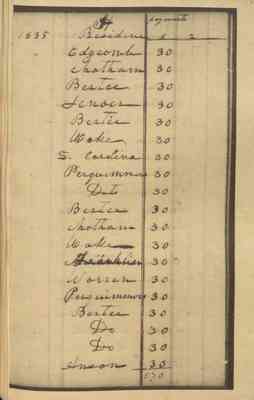 payments
1835 Residence
Edgcomb 30
Chatham 30
Bertee 30
Lenoir 30
Bertee 30
Wake 30
S. Carolina 30
Perquimmns 30
Dito 30
Bertee 30
Chatham 30
Wake 30
Franklin 30
Warren 30
Perquimmons 30
Bertee 30
Do 30
Do 30
Anson 30
570